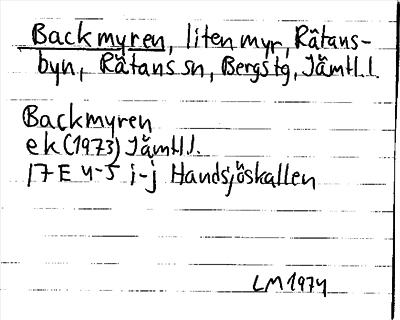 Backmyren, liten myr, Rätans-
byn, Rätans sn, Bergs tg, Jämtl. l.
Backmyren
ek (1973) Jämtl l.
17 E 4-5 i-j Handsjöskallen
LM 1974